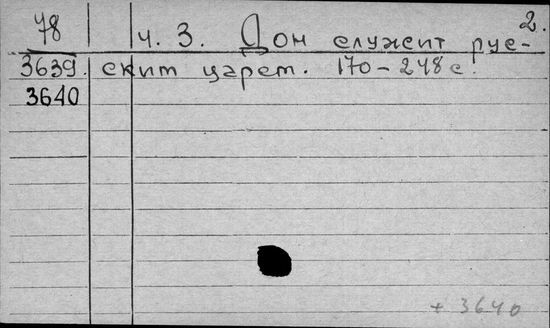 2.
78 ч. 3. Дон служит рус-
3639. ским царям. 170-248 с.
3640
+ 3640